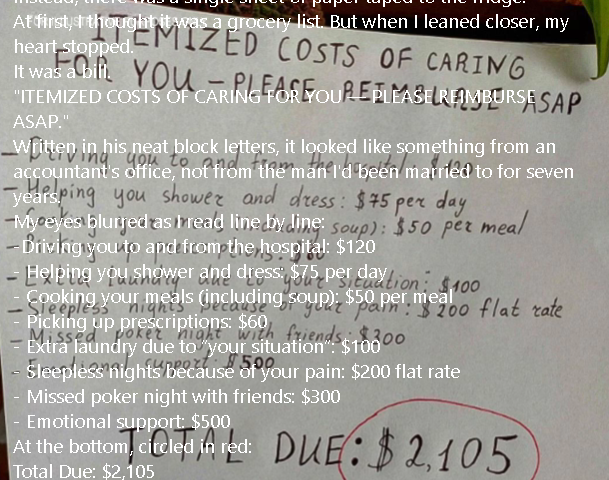 Instead, there was a single sheet of paper taped to the fridge.
At first, I thought it was a grocery list. But when I leaned closer, my
heart stopped.
It was a bill.
"ITEMIZED COSTS OF CARING FOR YOU — PLEASE REIMBURSE
ASAP."
Written in his neat block letters, it looked like something from an
accountant's office, not from the man I'd been married to for seven
years.
My eyes blurred as I read line by line:
- Driving you to and from the hospital: $120
- Helping you shower and dress: $75 per day
- Cooking your meals (including soup): $50 per meal
- Picking up prescriptions: $60
- Extra laundry due to “your situation”: $100
- Sleepless nights because of your pain: $200 flat rate
- Missed poker night with friends: $300
- Emotional support: $500
At the bottom, circled in red:
Total Due: $2,105
ITEMIZED COSTS OF CARING
FOR YOU – PLEASE REIMBURSE ASAP
- Driving you to and from the hospital: $120
- Helping you shower and dress: $75 per day
soup): $50 per meal
- Extra laundry due to your situation: $100
- Sleepless nights because of your pain: $200 flat rate
- Missed poker night with friends: $300
support: $500
TOTAL DUE: $2,105